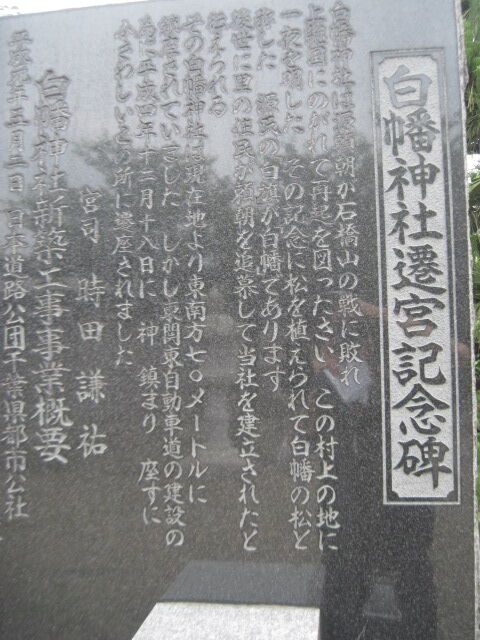 白幡神社遷宮記念碑
白幡神社は源頼朝が石橋山の戦に敗れ
上総国にのがれて再起を図ったさい この村上の地に
一夜を明した その記念に松を植えられて白幡の松と
称した 源氏の白旗が白幡であります
後世に里の住民が頼朝を追慕して当社を建立されたと
伝えられる
その白幡神社は現在地より東南方七〇メートルに
鎮座されていました しかし東関東自動車道の建設の
為に平成四年十二月十八日に 神 鎮まり 座すに
ふさわしいこの所に遷座されました
宮司 時田 謙祐
白幡神社新築工事事業概要
年三月二日 日本道路公団千葉県都市公社